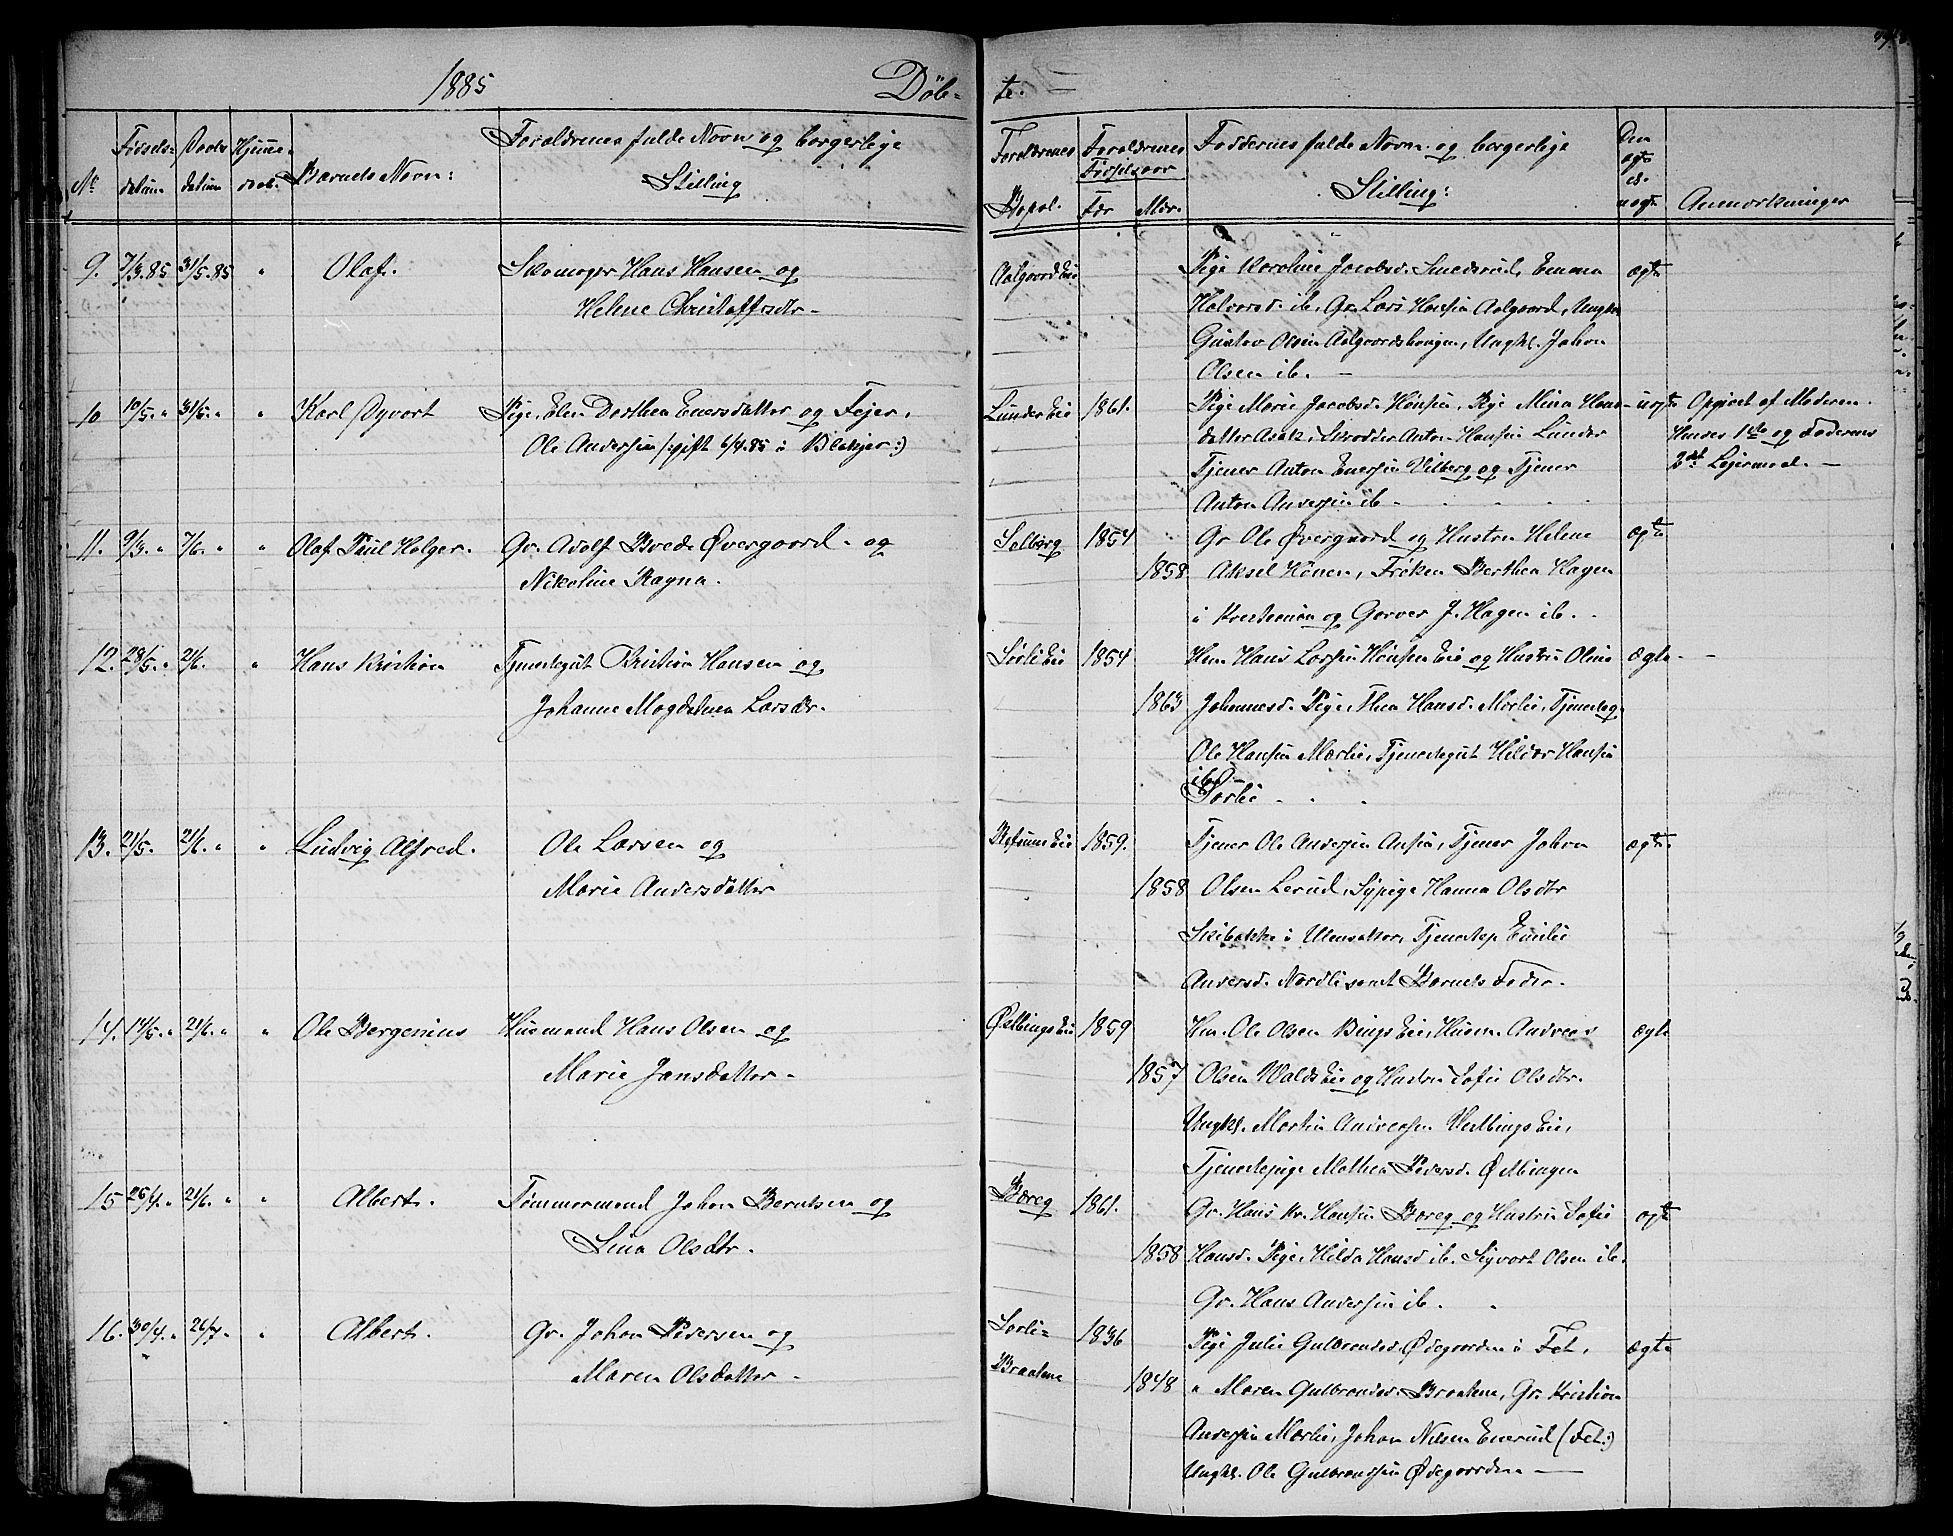 1885 Döb- te.
No Födsels- datum Daabs datum Hjemme- daab. Barnets Navn: Forældrenes fulde Navn og borgerlige Stilling
Forældrenes Bopæl. Forældrenes Födselsaar Far Mor. Faddernes fulde Navn og borgerlige Stilling: Om ægte el. uægte Anmærkninger
9. 7/3.85 31/5.85 " Olaf. Skomager Hans Hansen og
Helene Christoffersdtr -
Aalgaard Eie Pige Karoline Jacobsd. Smedsrud, Emma ægte
Halvorsd. ib, Gr. Lars Hansen Aalgaard, Ungk.
Gustav Olsen Aalgaardshaugen, Ungkl. Johan
Olsen ib. -
10 10/5. " 31/5. " " Karl Syvert Pige Elen Dorthea Enersdatter og Fejer,
Ole Andersen (:gift 6/4.85 i Blakjer:)
Lunder Eie 1861. Pige Marie Jacobsd. Hansen, Pige Mina Hans- uægte Opgivet af Moderen.
datter Asak, Skrædder Anton Hansen Lunder Hendes 1ste og Faderens
Tjener Anton Enersen Vilberg og Tjener 2det Lejermaal. -
Anton Andersen ib -
11. 9/3. " 7/6. " " Olaf Paul Holger. Gr. Adolf Brede Övergaard - og
Nikoline Ragna.
Selborg 1854 Gr Ole Övergaard og Hustru Helene ægte
1858 Aksel Hönen, Fröken Berthea Hagen
i Kristiania og Garver J. Hagen ib. -
12. 28/5. " 21/6. " Hans Kristian Tjenestegut Kristian Hansen og
Johanne Magdalena Larsdtr.
Sörli Eie 1854 Hm. Hans Larsen Hansen Eie og Hustru Oline ægte -
1863 Johannesd. Pige Thea Hansd. Mærlie, Tjenesteg.
Ole Hansen Mærlie, Tjenestegut Hildor Hansen
ib
Sörlie - . .
13. 21/5. 21/6. " " Ludvig Alfred. Ole Larsen og
Marie Andersdatter
Refsum Eie 1859. Tjener Ole Andersen Ansen, Tjener Johan ægte
1858 Olsen Lerud, Sypige Hanna Olsdtr
Skibakke i Ulensaker, Tjenestep Emilie
Andersd. Nordli samt Barnets Fader.
14. 14/5. " 21/6. " " Ole Bergenius Husmand Hans Olsen og
Marie Jansdatter -
Östbings Eie 1859 Hm. Ole Olsen Bings Eie, Husm. Andreas ægte
1857 Olsen Valds Eie og Hustru Sofie Olsdtr.
Ungkl. Martin Andreasen Vestbings Eie,
Tjenestepige Mathea Pedersd. Östbingen
15 26/4. " 21/6. " " Albert. Tömmermand Johan Berntsen og
Lina Olsdtr.
Bæreg 1861. Gr. Hans Kr. Hansen Bæreg og Hustru Sofie ægte
1858 Hansd. Pige, Hilda Hansd ib. Sigvart Olsen ib.
Gr. Hans Andersen ib. "
16. 30/4. " 26/7. " Albert. Gr. Johan Pedersen og
Maren Olsdatter -
Sörli- 1836 Pige Julie Gulbrandsd. Ödegaarden i Fet, ægte
Braatene 1848 " Maren Gulbrandsd. Braatene, Gr. Kristian
Andersen Mærlie, Johan Nilsen Enerud (Fet:)
Ungkl. Ole Gulbrandsen Ödegaarden -